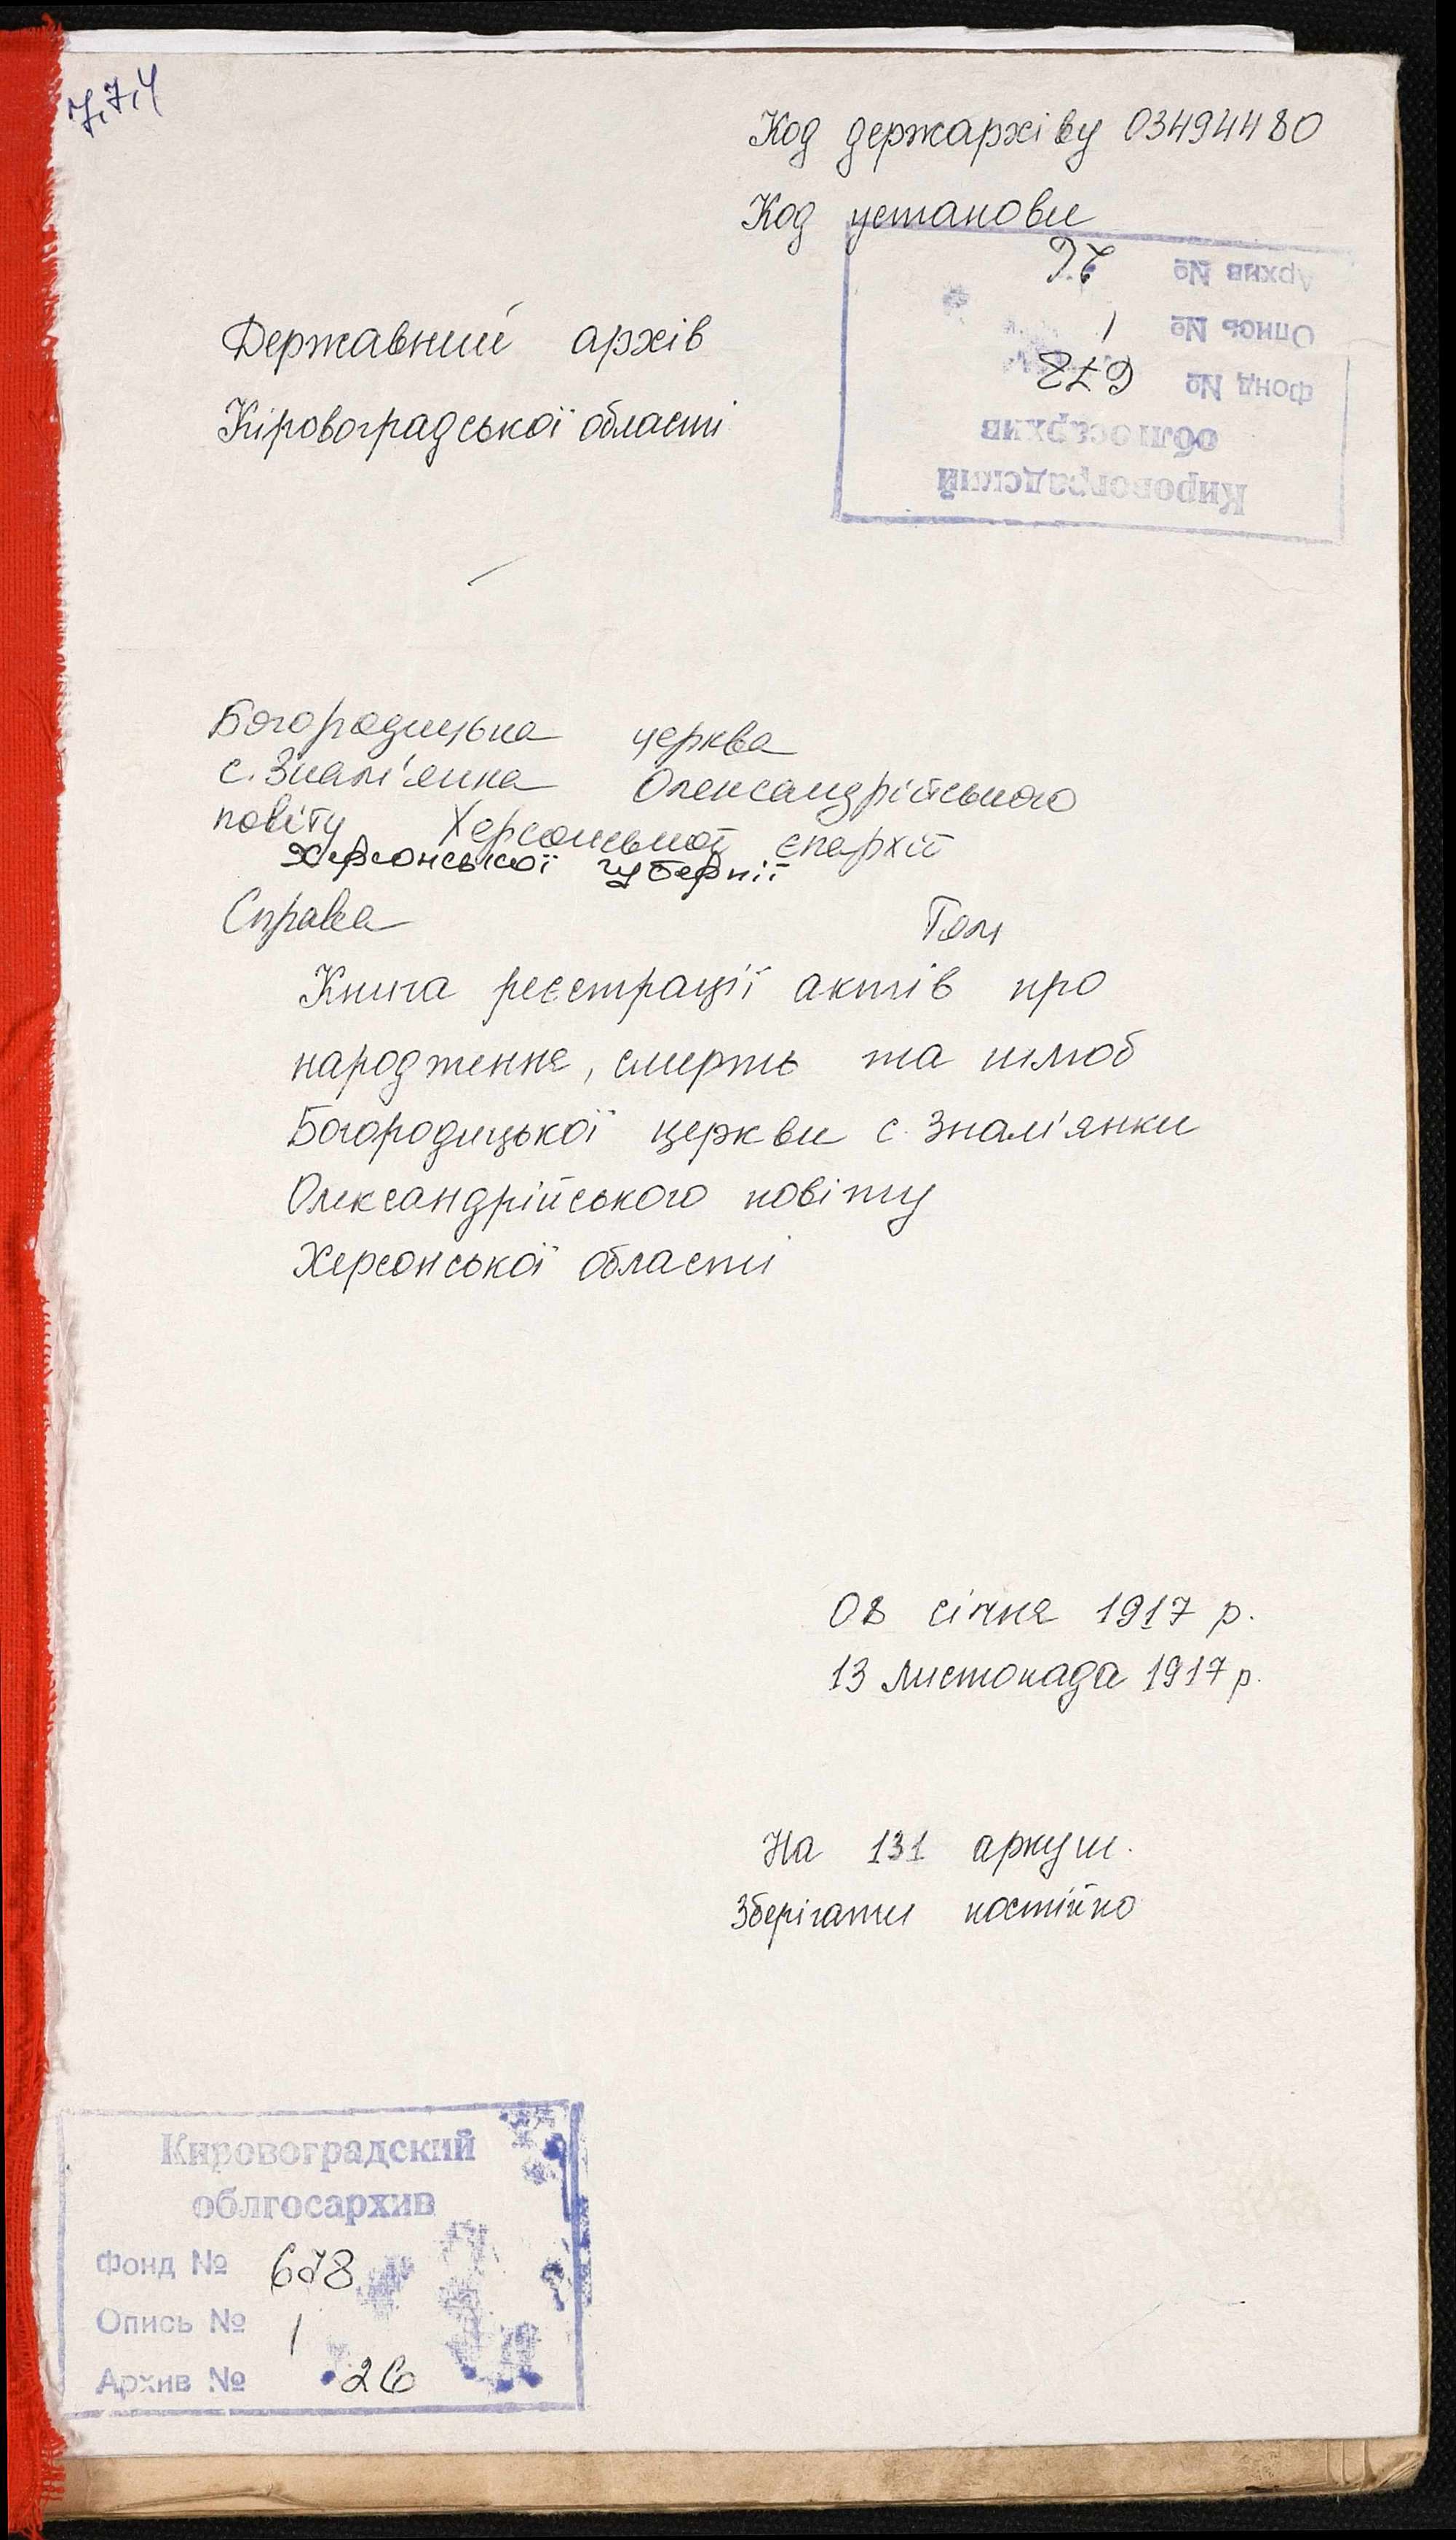 7,7,4
Код держархіву 03494480
Код установи
Архив № 26
Опись № 1
Фонд № 678
облгосархив
Кировоградский
Державний архів
Кіровоградської області
Богородицька церква
с. Знам'янка Олександрійського
повіту Херсонської єпархії
Херсонської губернії
Справа Том
Книга реєстрації актів про
народження, смерть та шлюб
Богородицької церкви с. Знам'янки
Олександрійського повіту
Херсонської області
08 січня 1917 р.
13 листопада 1917 р.
На 131 аркуш.
Зберігати постійно
Кировоградский
облгосархив
Фонд № 678
Опись № 1
Архив № 26